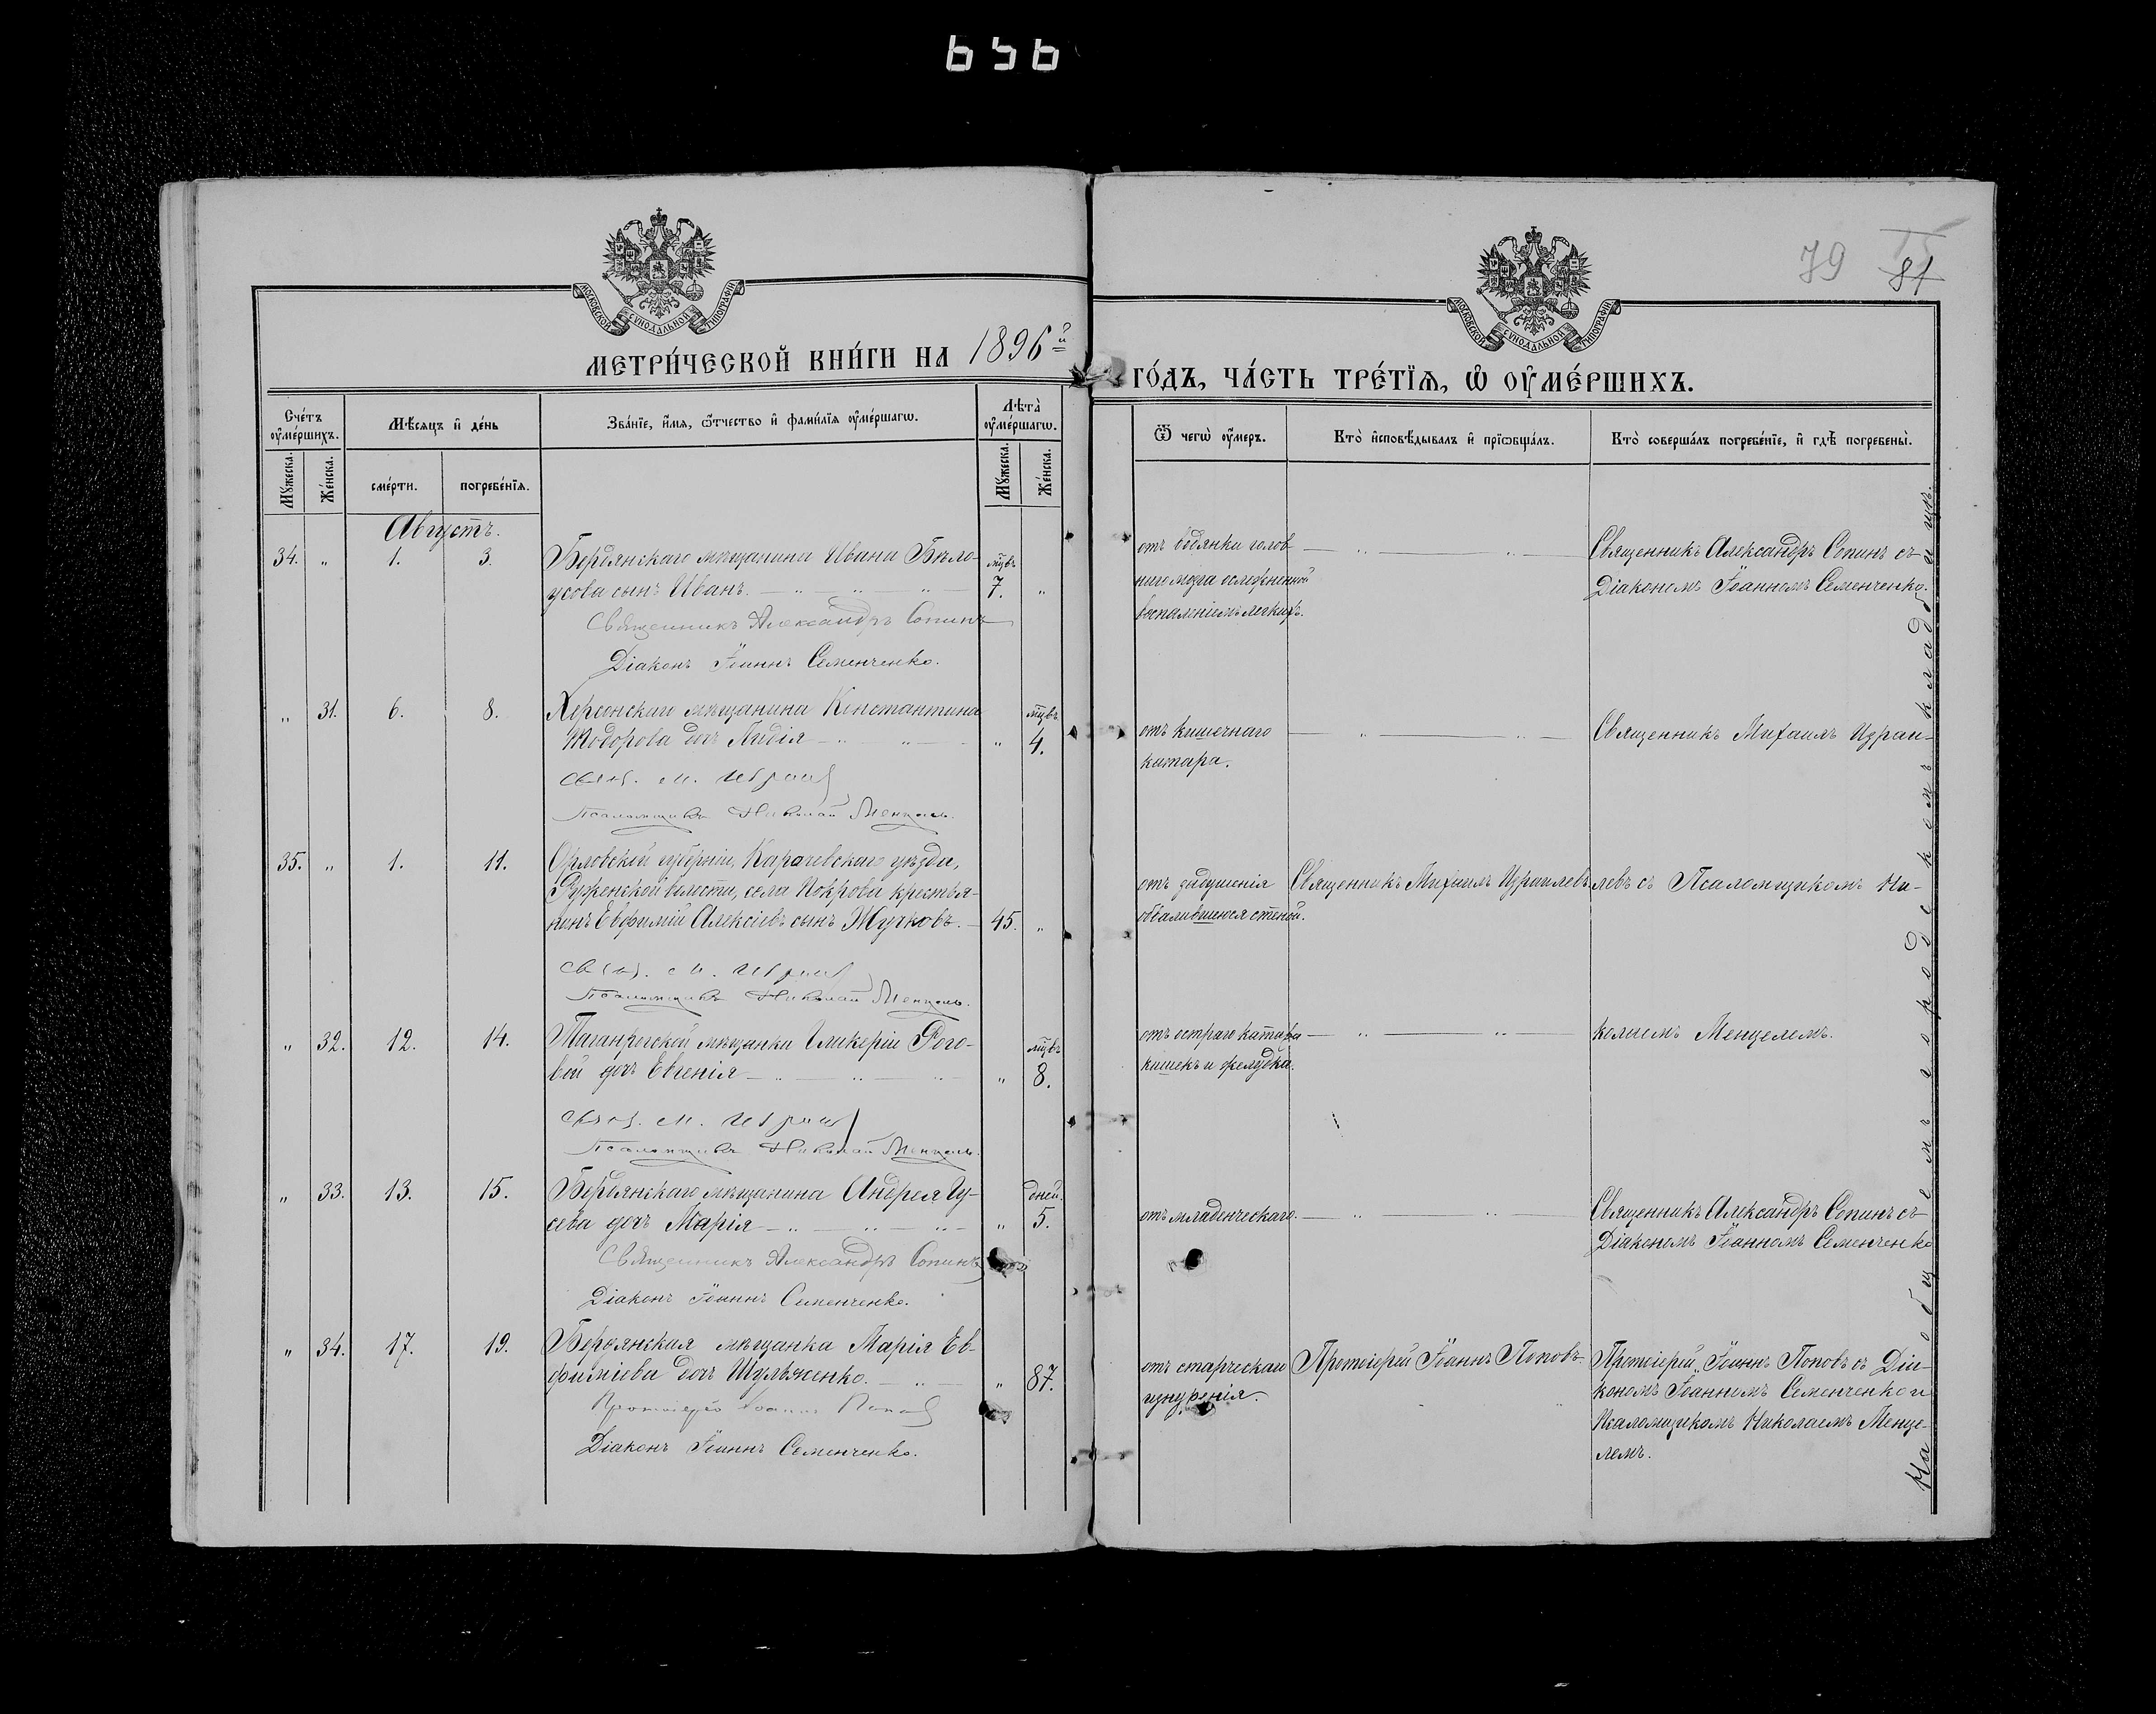 656
79
81
МОСКОВСКОЙ СѴНОДАЛЬНОЙ ТИПОГРАФІИ
МОСКОВСКОЙ СѴНОДАЛЬНОЙ ТИПОГРАФІИ
МЕТРИ́ЧЕСКОЙ КНИ́ГИ НА 1896й
ГО́ДЪ, ЧА́СТЬ ТРЕ́ТЇѦ, Ѡ҆ ОУ҆МЕ́РШИХЪ.
Сче́тъ оу҆ме́ршихъ.
Мꙋ́жеска.
Же́нска.
Мѣ́сѧцъ и҆ де́нь
сме́рти.
погребе́нїѧ.
Зва́нїе, и҆́мѧ, ѻ҆́тчество и҆ фами́лїѧ оу҆ме́ршагѡ.
Лѣ́та оу҆ме́ршагѡ.
Мꙋ́жеска.
Же́нска.
Ѿ чегѡ̀ оу҆́меръ.
Кто̀ и҆сповѣ́дывалъ и҆ прїѡбща́лъ.
Кто̀ соверша́лъ погребе́нїе, и҆ гдѣ̀ погребены̀.
Августъ.
34. „ 1. 3. Бердянскаго мѣщанина Ивана Бѣло-
усова сынъ Иванъ. мцвъ 7. „
Священникъ Александръ Сопинъ
Діаконъ Іоаннъ Семенченко.
отъ водянки голов
наго мозга осложненной
воспаленіемъ легкихъ.
Священникъ Александръ Сопинъ съ
Діакономъ Іоанномъ Семенченко.
„ 31. 6. 8. Херсонскаго мѣщанина Константина
Тодорова дочь Лидія „ мцвъ. 4.
Свящ. М. Израил
Псаломщикъ Николай Менцель.
отъ кишечнаго
катара.
Священникъ Михаилъ Израи-
35. „ 1. 11. Орловской губерніи, Карачевскаго уѣзда,
Руженской волости, села Покрова крестья-
нинъ Евфимій Алексіевъ сынъ Жучковъ. 45. „
Свящ. М. Израил
Псаломщикъ Николай Менцель.
отъ задушенія
обвалившеюся стеной.
Священникъ Михаилъ Израилевъ
левъ съ Псаломщикомъ Ни-
„ 32. 12. 14. Таганрогской мѣщанки Гликеріи Рого-
вой дочь Евгенія „ мцвъ 8.
Свящ. М. Израил
Псаломщикъ Николай Менцель.
отъ остраго катара
кишекъ и желудка.
колаемъ Менцелемъ.
„ 33. 13. 15. Бердянскаго мѣщанина Андрея Гу-
сева дочь Марія „ дней. 5.
Священникъ Александръ Сопинъ
Діаконъ Іоаннъ Семенченко.
отъ младенческаго.
Священникъ Александръ Сопинъ съ
Діакономъ Іоанномъ Семенченко
„ 34. 17. 19. Бердянская мѣщанка Марія Ев-
фиміева дочь Шульженко. „ 87.
Протоіерей Іоаннъ Попов
Діаконъ Іоаннъ Семенченко.
отъ старческаго
изнуренія.
Протоіерей Іоаннъ Поповъ
Протоіерей Іоаннъ Поповъ съ Діа-
кономъ Іоанномъ Семенченко и
Псаломщикомъ Николаемъ Менце-
лемъ.
На общемъ городскомъ кладбищѣ.